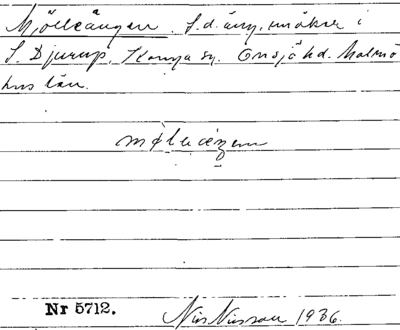 Mjölleången. f.d. äng, småkar i
S. Djurup, Konga sn. Onsjö hd. Malmö
hus län.
Nr 5712.
Nils Nilsson 1936.